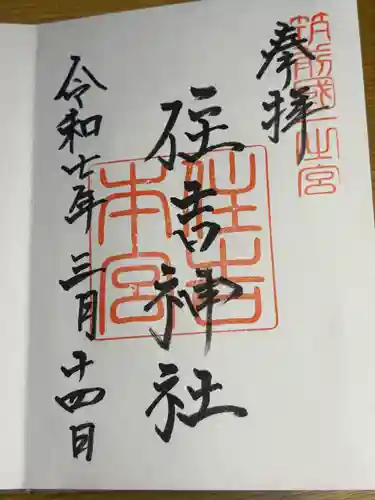 筑前國一之宮
奉拝
住吉神社
住吉本宮
令和七年三月十四日